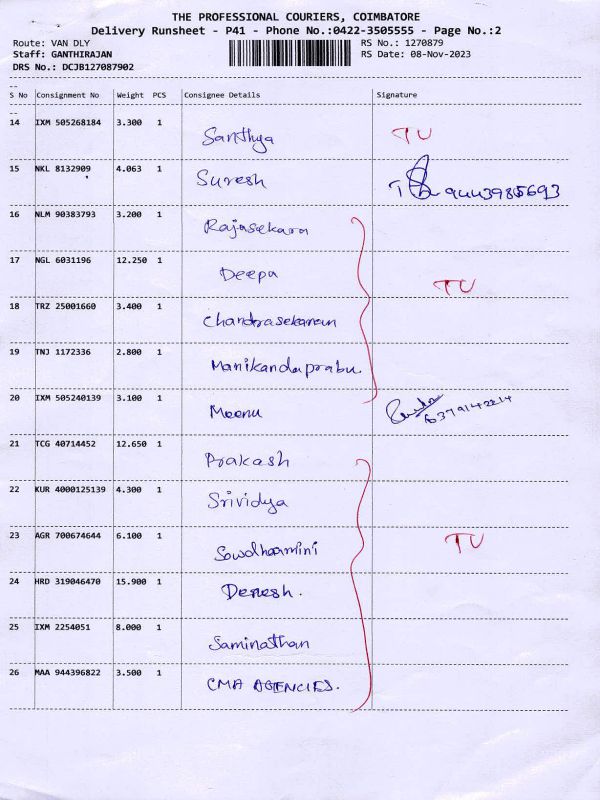 THE PROFESSIONAL COURIERS, COIMBATORE
Delivery Runsheet - P41 - Phone No.:0422-3505555 - Page No.:2
Route: VAN DLY RS No.: 1270879
Staff: GANTHIRAJAN RS Date: 08-Nov-2023
DRS No.: DCJB127087902
--
S No Consignment No Weight PCS Consignee Details Signature
--
14 IXM 505268184 3.300 1 Santhya TU
15 NKL 8132909 4.063 1 Suresh 9443985693
16 NLM 90383793 3.200 1 Rajasekaran
17 NGL 6031196 12.250 1 Deepa TU
18 TRZ 25001660 3.400 1 Chandrasekaran
19 TNJ 1172336 2.800 1 Manikandaprabu.
20 IXM 505240139 3.100 1 Meenu 6379142214
21 TCG 40714452 12.650 1 Prakash
22 KUR 4000125139 4.300 1 Srividya
23 AGR 700674644 6.100 1 Sowdharmini TU
24 HRD 319046470 15.900 1 Denesh.
25 IXM 2254051 8.000 1 Saminathan
26 MAA 944396822 3.500 1 CMA AGENCIES.